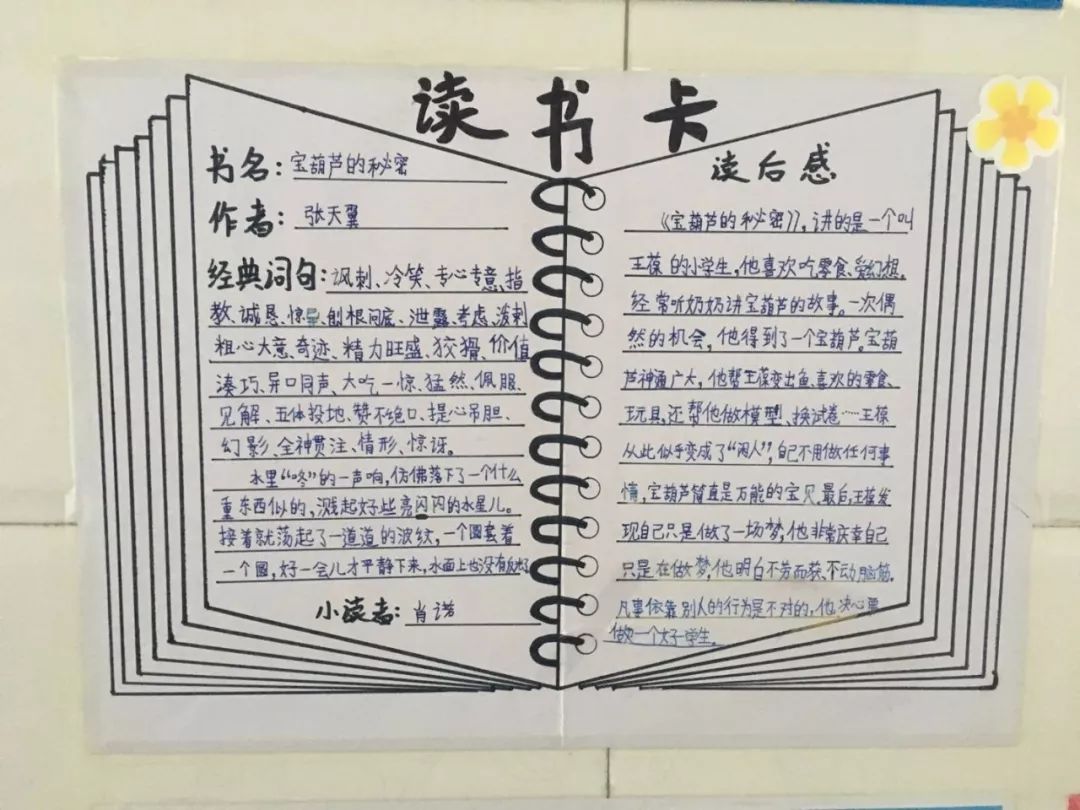 读书卡
书名：宝葫芦的秘密
作者：张天翼
经典词句：讽刺、冷笑、专心专意、指
教、诚恳、惊异、刨根问底、泄露、考虑、泼剌
粗心大意、奇迹、精力旺盛、狡猾、价值
凑巧、异口同声、大吃一惊、猛然、佩服、
见解、五体投地、赞不绝口、提心吊胆、
幻影、全神贯注、情形、惊讶。
水里“咚”的一声响，仿佛落下了一个什么
重东西似的，溅起好些亮闪闪的水星儿。
接着就荡起了一道道的波纹，一个圆套着
一个圆，好一会儿才平静下来，水面上也没有
小读者：肖诺
读后感
《宝葫芦的秘密》，讲的是一个叫
王葆的小学生，他喜欢吃零食、爱幻想，
经常听奶奶讲宝葫芦的故事。一次偶
然的机会，他得到了一个宝葫芦。宝葫
芦神通广大，他帮王葆变出鱼、喜欢的零食、
玩具，还帮他做模型、换试卷……王葆
从此似乎变成了“闲人”，自己不用做任何事
情，宝葫芦简直是万能的宝贝。最后，王葆发
现自己只是做了一场梦，他非常庆幸自己
只是在做梦，他明白不劳而获、不动脑筋，
凡事依靠别人的行为是不对的，他决心要
做一个好学生。